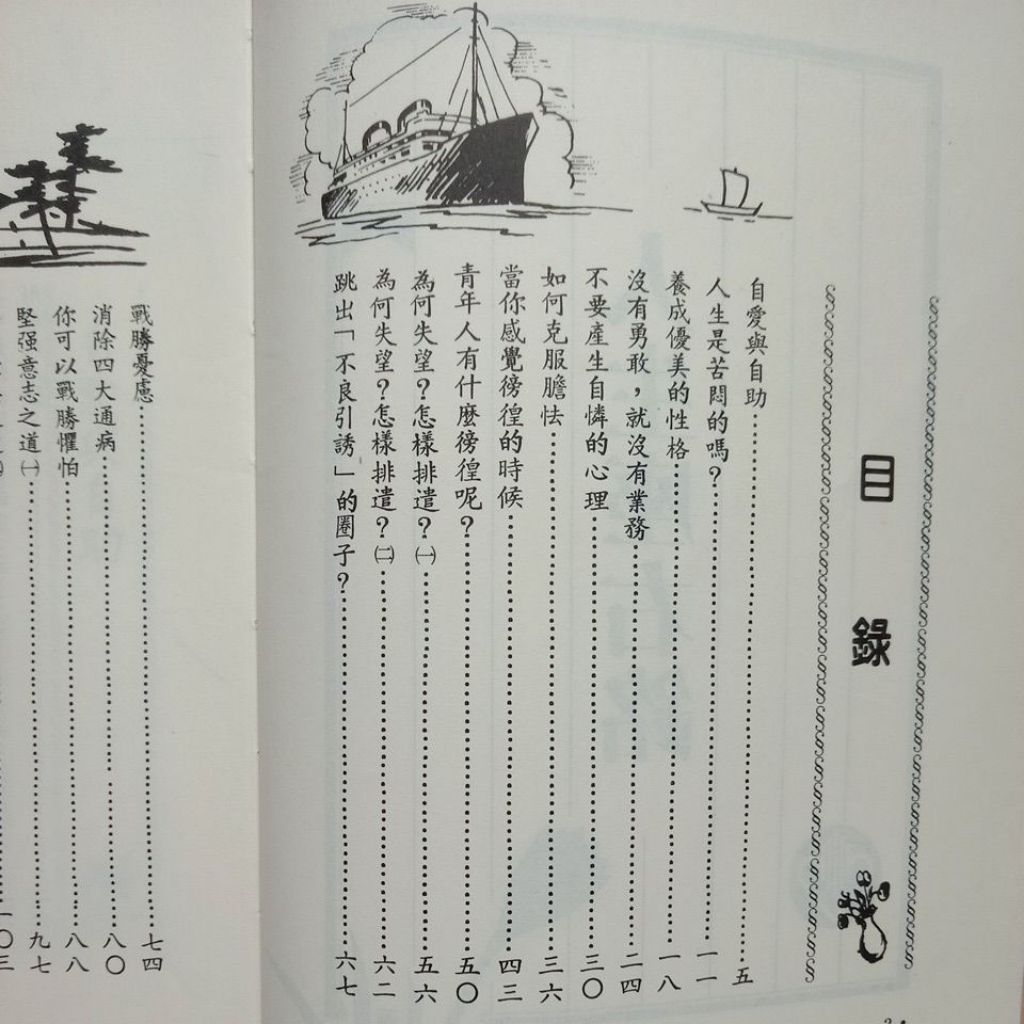 目錄
自愛與自助……五
人生是苦悶的嗎？……一一
養成優美的性格……一八
沒有勇敢，就沒有業務……二四
不要產生自憐的心理……三〇
如何克服膽怯……三六
當你感覺徬徨的時候……四三
青年人有什麼徬徨呢？……五〇
為何失望？怎樣排遣？㈠……五六
為何失望？怎樣排遣？㈡……六二
跳出「不良引誘」的圈子？……六七
戰勝憂慮……七四
消除四大通病……八〇
你可以戰勝懼怕……八八
堅强意志之道㈠……九七
一〇三